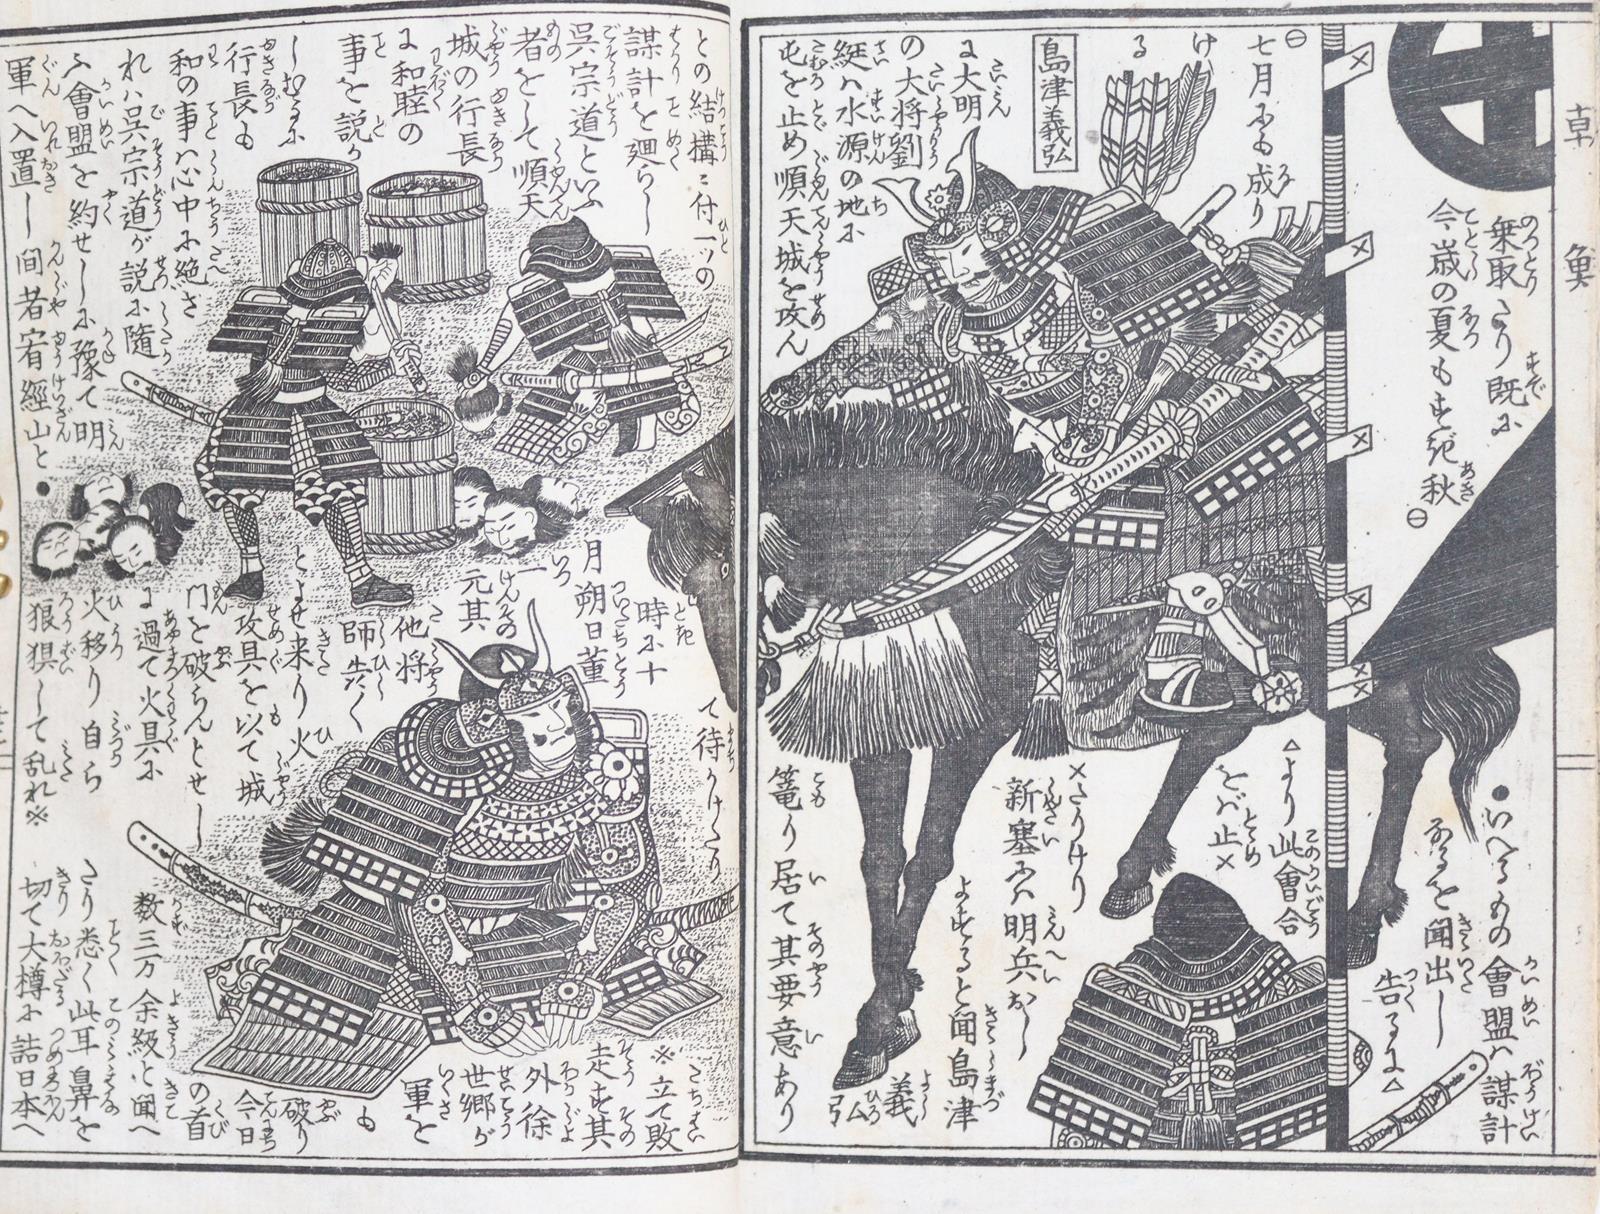 乗取たり既に
今歳の夏もすぎ秋㊀
㊀七月にも成り
ける
島津義弘
に大明
の大将劉
綎ハ水源の地に
屯を止め順天城を攻ん
●いへるものゝ會盟ハ謀計
なるを聞出し
告るに△
△より此會合
をバ止×
×たりけり
新塞にハ明兵おし
よすると聞島津
義弘
篭り居て其要意あり
との結構に付一ツの
謀計を廻らし
呉宗道といふ
者をして順天
城の行長
に和睦の
事を説か
しむるに
行長も
和の事ハ心中に絶ざ
れハ呉宗道が説に随
ふ會盟を約せしに豫て明
軍へ入置し間者宥經山と●
て待かけたり
時に十
月朔日董
一元其
他将
師共く
とよせ来り火
攻具を以て城
門を破らんとせし
に過て火具に
火移り自ら
狼狽して乱れ※
※立て敗
走す其
外徐
世郷が
軍をも
破り
今日
の首
数三万余級と聞へ
たり悉く此耳鼻を
切て大樽に詰日本へ